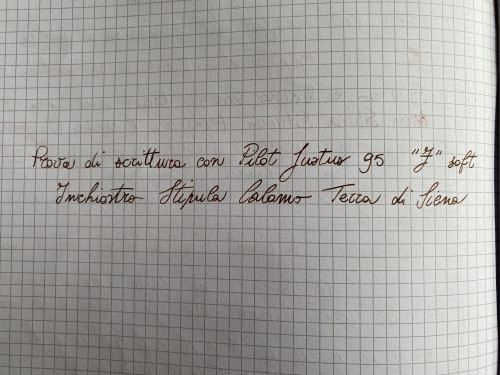 Prova di scrittura con Pilot Justus 95 "F" soft
Inchiostro Stipula Calamo Terra di Siena